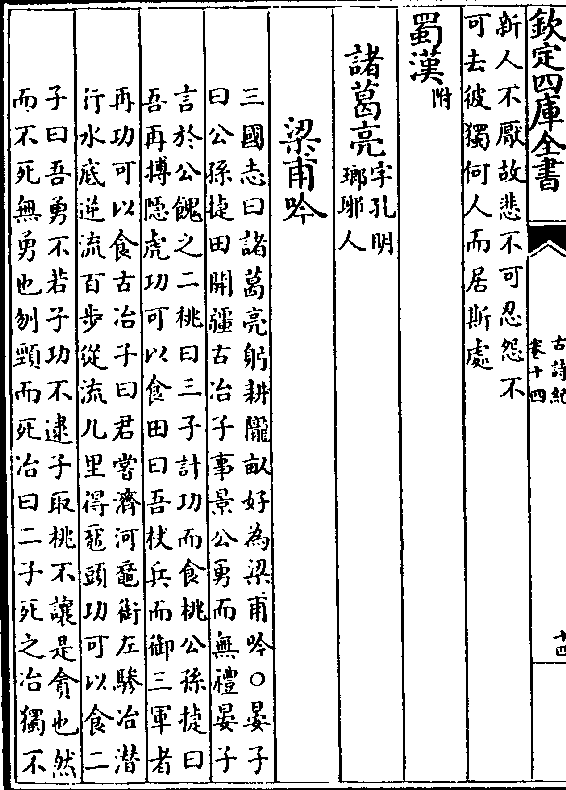 欽定四庫全書
古詩紀
卷十四
十四
新人不厭故悲不可忍怨不
可去彼獨何人而居斯處
蜀漢附
諸葛亮字孔明
瑯琊人
梁甫吟
三國志曰諸葛亮躬耕隴畝好為梁甫吟○晏子
曰公孫捷田開疆古冶子事景公勇而無禮晏子
言於公餽之二桃曰三子計功而食桃公孫捷曰
吾再搏隠虎功可以食田曰吾杖兵而御三軍者
再功可以食古冶子曰君嘗濟河黿銜左驂冶潜
行水底逆流百步從流九里得黿頭功可以食二
子曰吾勇不若子功不逮子取桃不讓是貪也然
而不死無勇也刎頸而死冶曰二子死之冶獨不